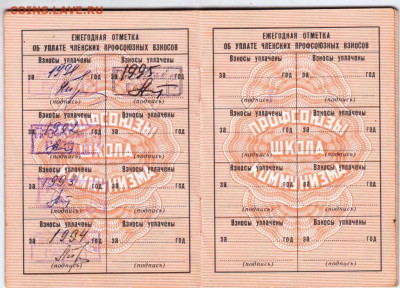 COINS.LAVE.RU
ЕЖЕГОДНАЯ ОТМЕТКА
ОБ УПЛАТЕ ЧЛЕНСКИХ ПРОФСОЮЗНЫХ ВЗНОСОВ
Взносы уплачены Взносы уплачены
за 1991 год за 1995 год
(подпись) (подпись)
Взносы уплачены Взносы уплачены
за 1992 год за год
(подпись) (подпись)
Взносы уплачены Взносы уплачены
за 1993 год за год
(подпись) (подпись)
Взносы уплачены Взносы уплачены
за 1994 год за год
(подпись) (подпись)
ПРОФСОЮЗЫ
ШКОЛА
КОММУНИЗМА
ЕЖЕГОДНАЯ ОТМЕТКА
ОБ УПЛАТЕ ЧЛЕНСКИХ ПРОФСОЮЗНЫХ ВЗНОСОВ
Взносы уплачены Взносы уплачены
за год за год
(подпись) (подпись)
Взносы уплачены Взносы уплачены
за год за год
(подпись) (подпись)
Взносы уплачены Взносы уплачены
за год за год
(подпись) (подпись)
Взносы уплачены Взносы уплачены
за год за год
(подпись) (подпись)
ПРОФСОЮЗЫ
ШКОЛА
КОММУНИЗМА